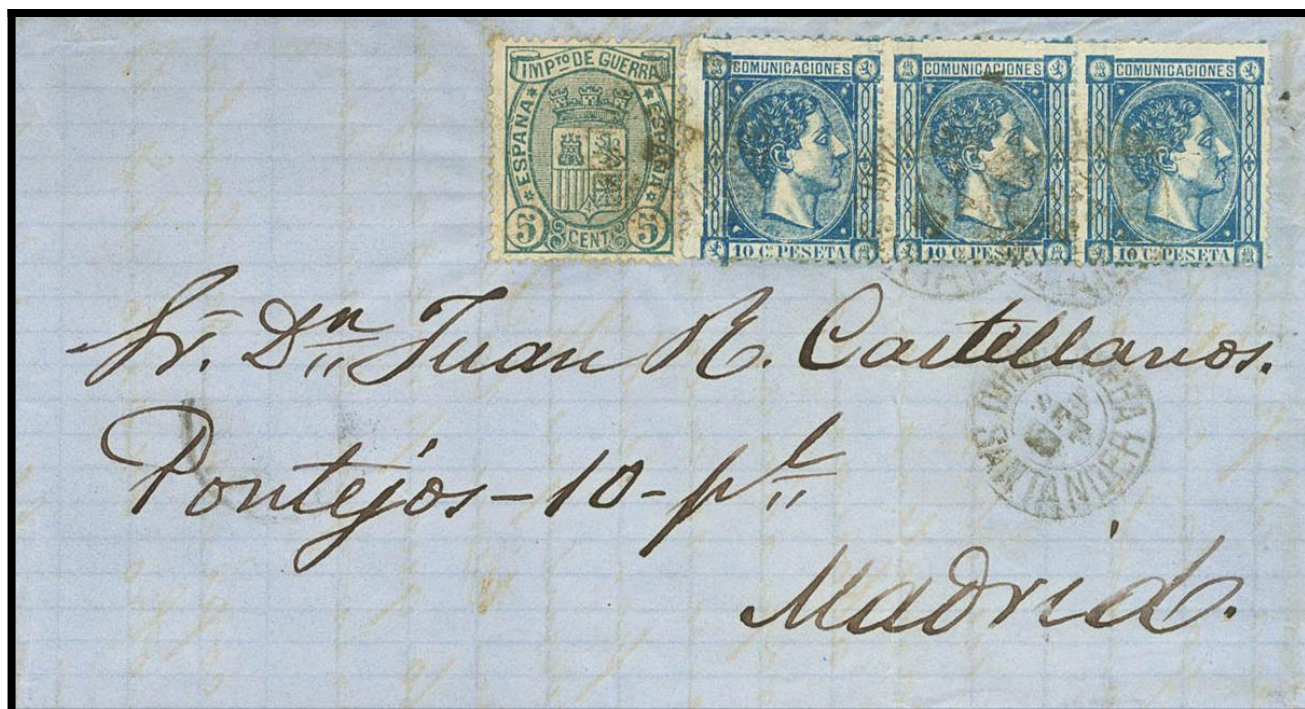 IMPTO DE GUERRA
ESPAÑA ESPAÑA
5 CENT. 5
COMUNICACIONES COMUNICACIONES COMUNICACIONES
10 C. PESETA 10 C. PESETA 10 C. PESETA
Sr. Dn Juan R. Castellanos.
Pontejos-10-pl
Madrid.
SANTANDER